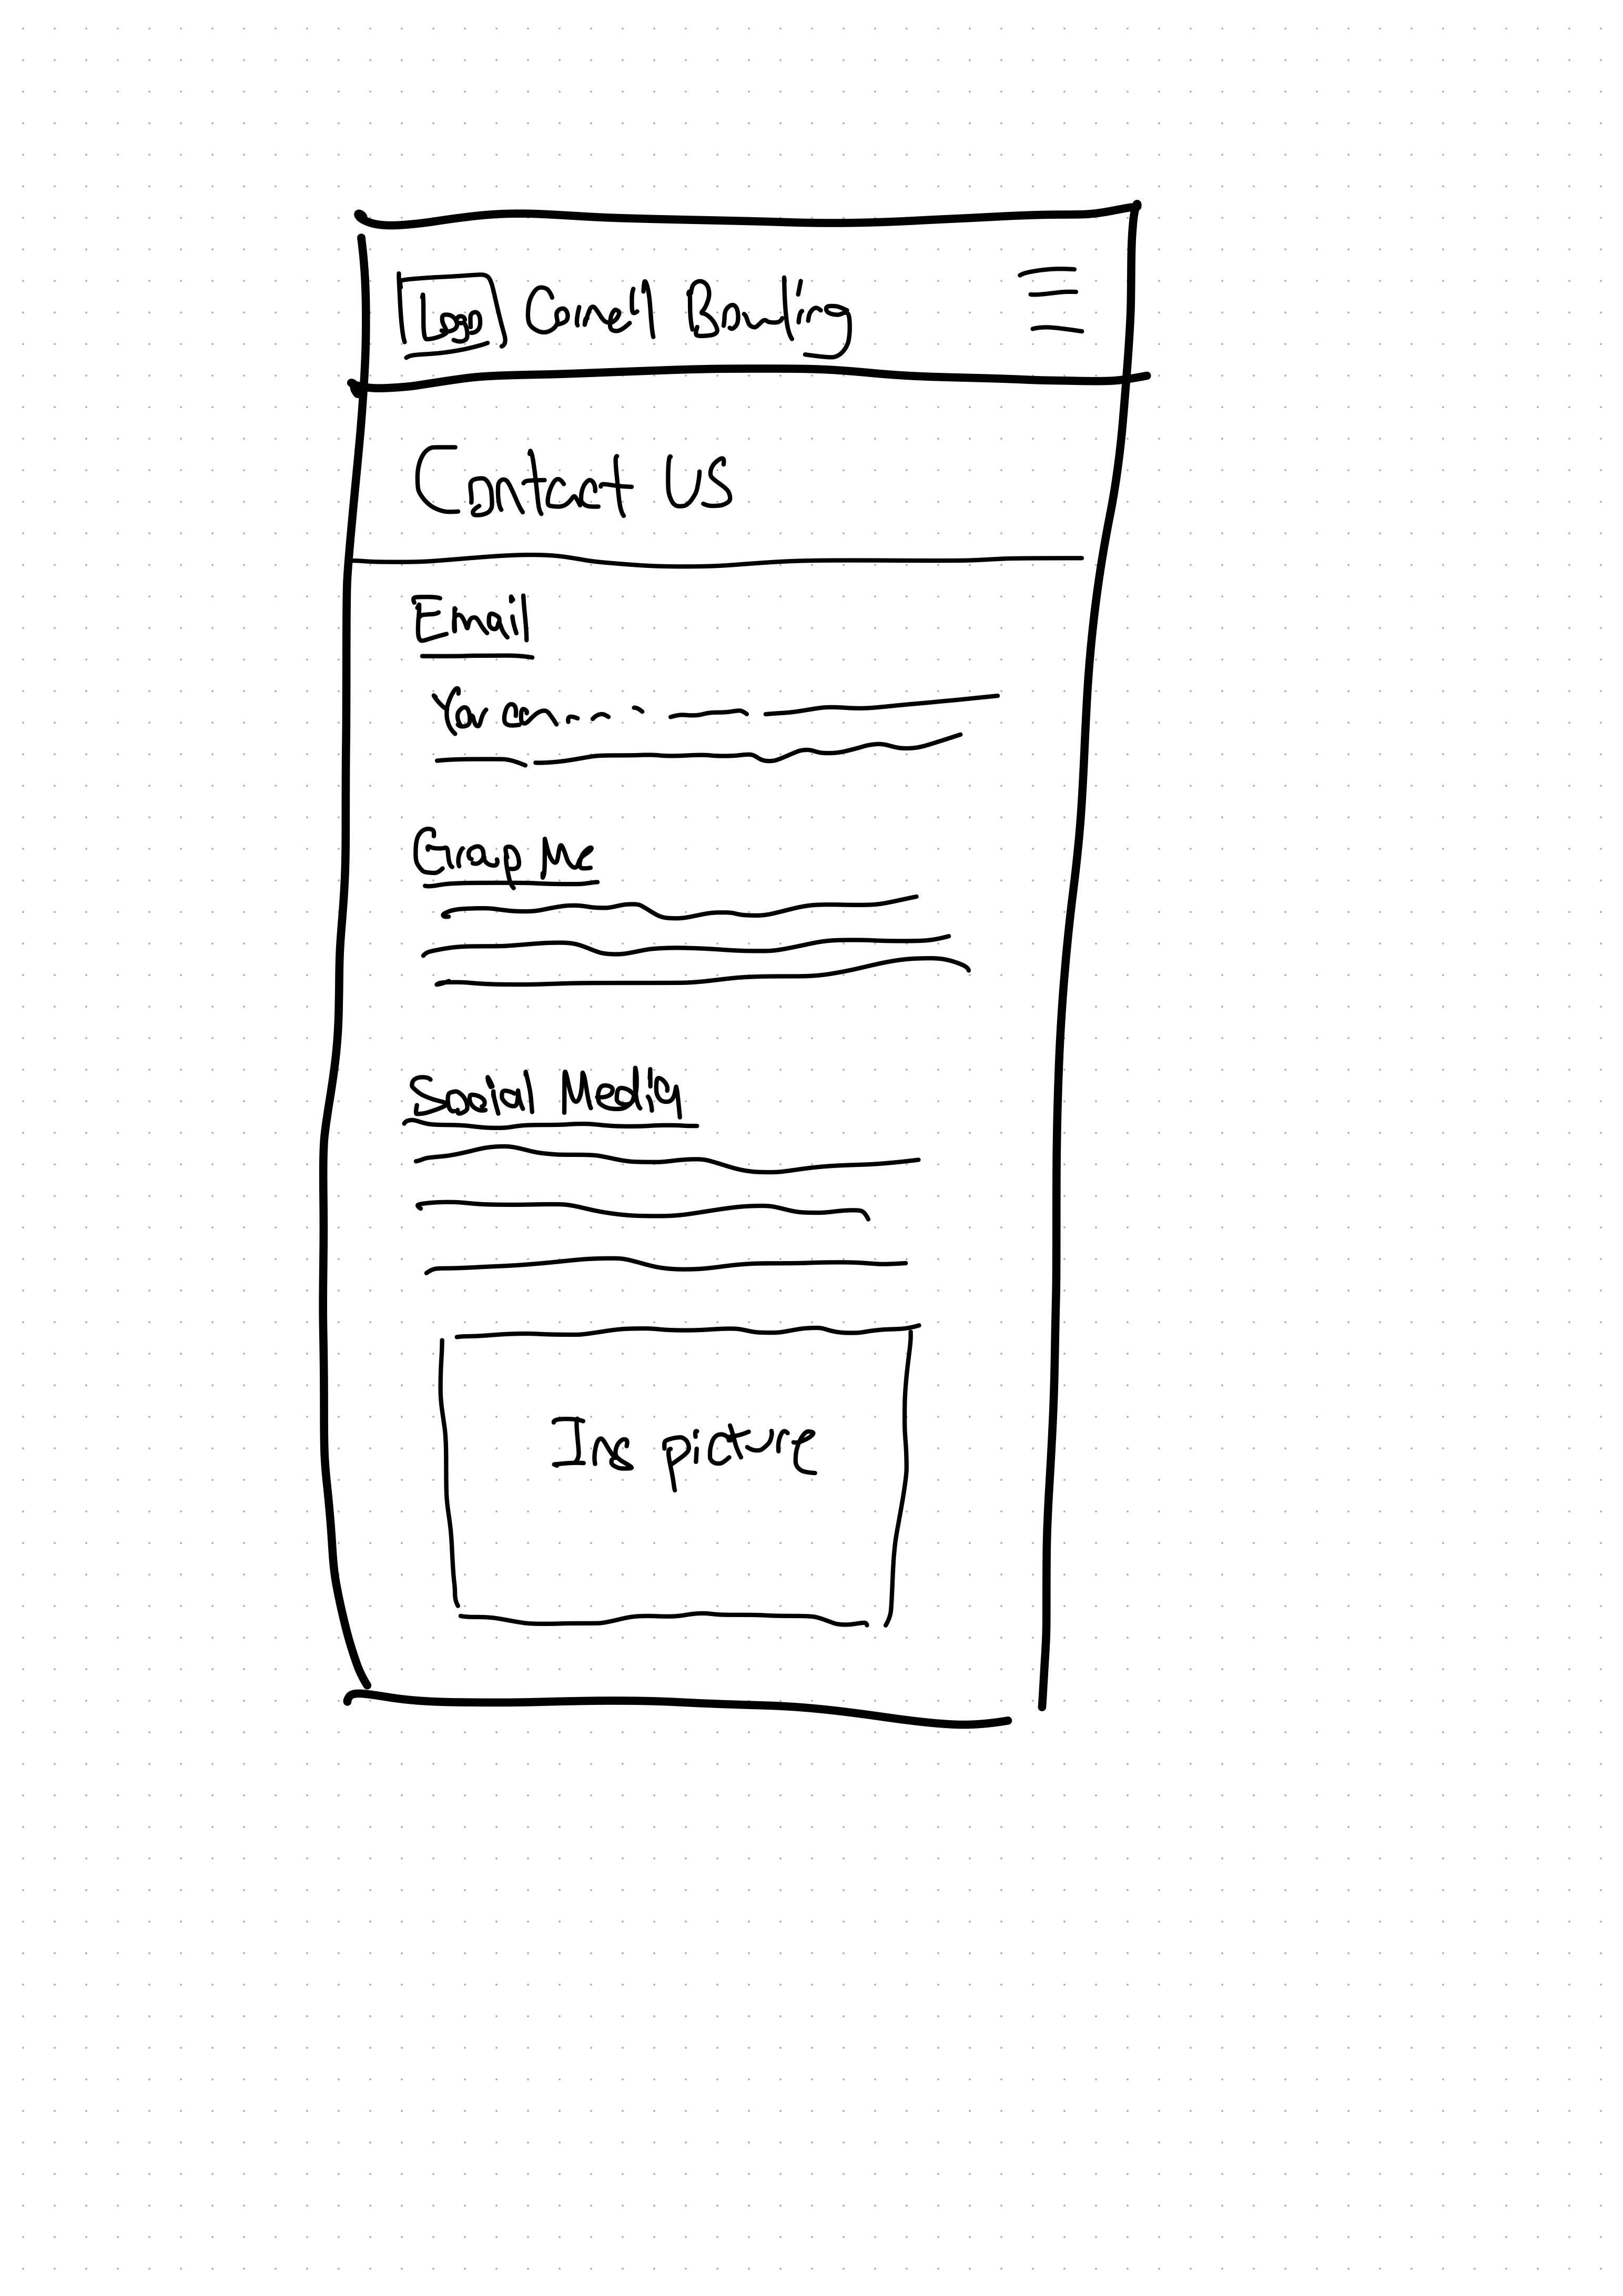 Logo Cornell Bowling
Contact US
Email
You can...
Group Me
Social Media
Ins picture